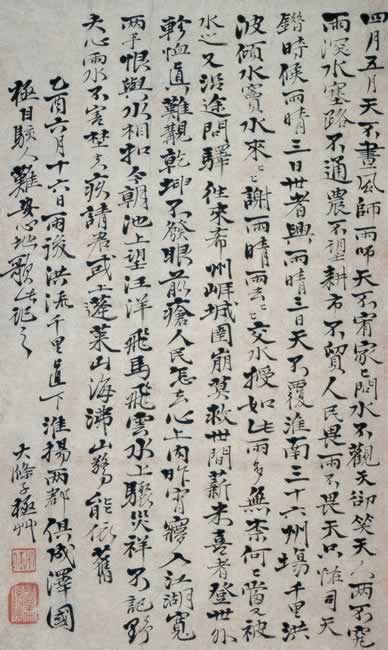 四月五月天不晝風師雨師天不宥家〻閉水不觀天卻笑天人兩不究
雨溟水塞路不通農不望耕市不貿人民畏雨不畏天只恠司天
錯時候雨晴三日世者興雨晴三日天不覆淮南三十六州場千里洪
波傾水竇水來〻謝雨晴雨去〻交水授如此雨多無柰何〻當又被
水 又沿途閉驛往來希州崕城圍崩莫救世間薪米喜者登世外
軫恤真難觀乾坤不發眼前瘡人民怎去心上肉昨宵 入江湖寬
兩手恨與水相扣今朝池上望汪洋飛馬飛雲水上驟災祥不記野
夫心雨水不害埜 疾請君試上蓬萊山海滯山 能依舊
乙酉六月十六日雨後洪流千里直下淮揚兩都俱成澤國
極目駭人難安心地歌此記之
大滌子極艸